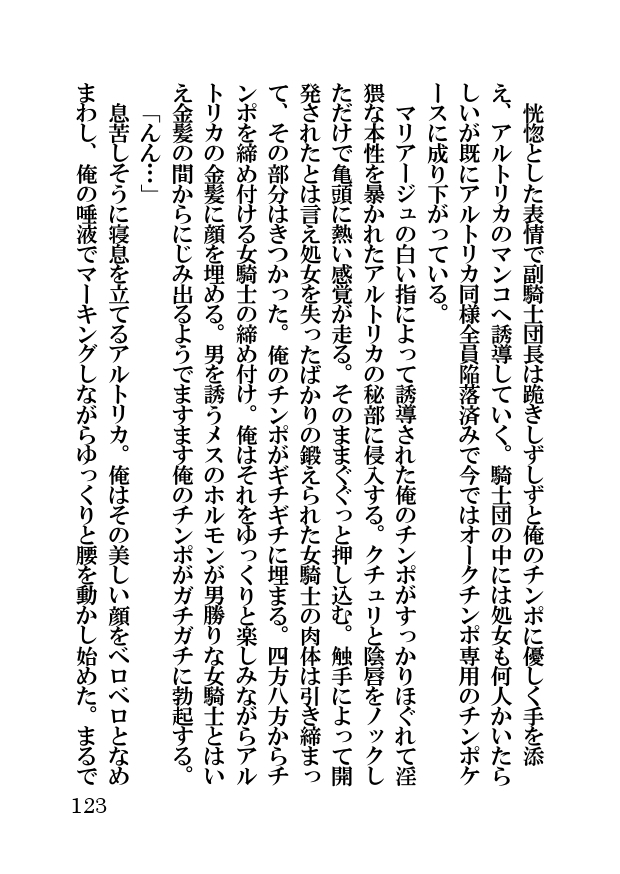 恍惚とした表情で副騎士団長は跪きしずしずと俺のチンポに優しく手を添
え、アルトリカのマンコへ誘導していく。騎士団の中には処女も何人かいたら
しいが既にアルトリカ同様全員陥落済みで今ではオークチンポ専用のチンポケ
ースに成り下がっている。
マリアージュの白い指によって誘導された俺のチンポがすっかりほぐれて淫
猥な本性を暴かれたアルトリカの秘部に侵入する。クチュリと陰唇をノックし
ただけで亀頭に熱い感覚が走る。そのままぐぐっと押し込む。触手によって開
発されたとは言え処女を失ったばかりの鍛えられた女騎士の肉体は引き締まっ
て、その部分はきつかった。俺のチンポがギチギチに埋まる。四方八方からチ
ンポを締め付ける女騎士の締め付け。俺はそれをゆっくりと楽しみながらアル
トリカの金髪に顔を埋める。男を誘うメスのホルモンが男勝りな女騎士とはい
え金髪の間からにじみ出るようでますます俺のチンポがガチガチに勃起する。
「んん…」
息苦しそうに寝息を立てるアルトリカ。俺はその美しい顔をベロベロとなめ
まわし、俺の唾液でマーキングしながらゆっくりと腰を動かし始めた。まるで
123